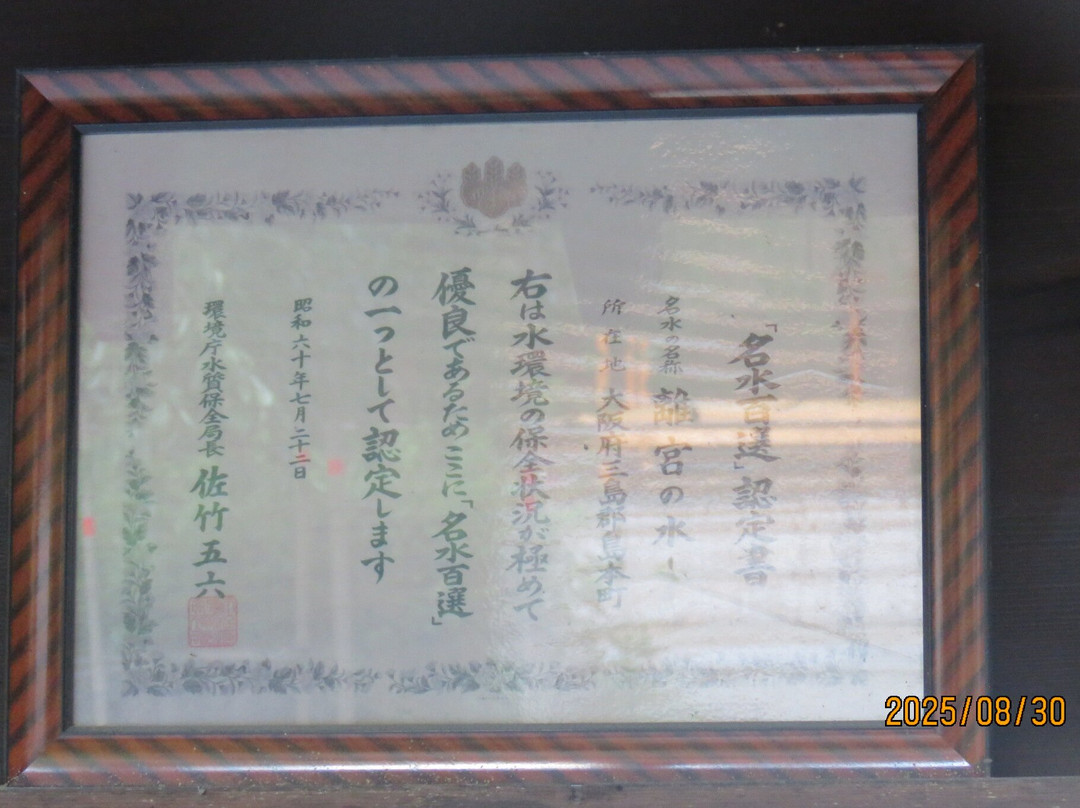 「名水百選」認定書
名水の名称 離宮の水
所在地 大阪府三島郡島本町
右は水環境の保全状況が極めて
優良であるためここに「名水百選」
の一つとして認定します
昭和六十年七月二十二日
環境庁水質保全局長 佐竹五六
2025/08/30